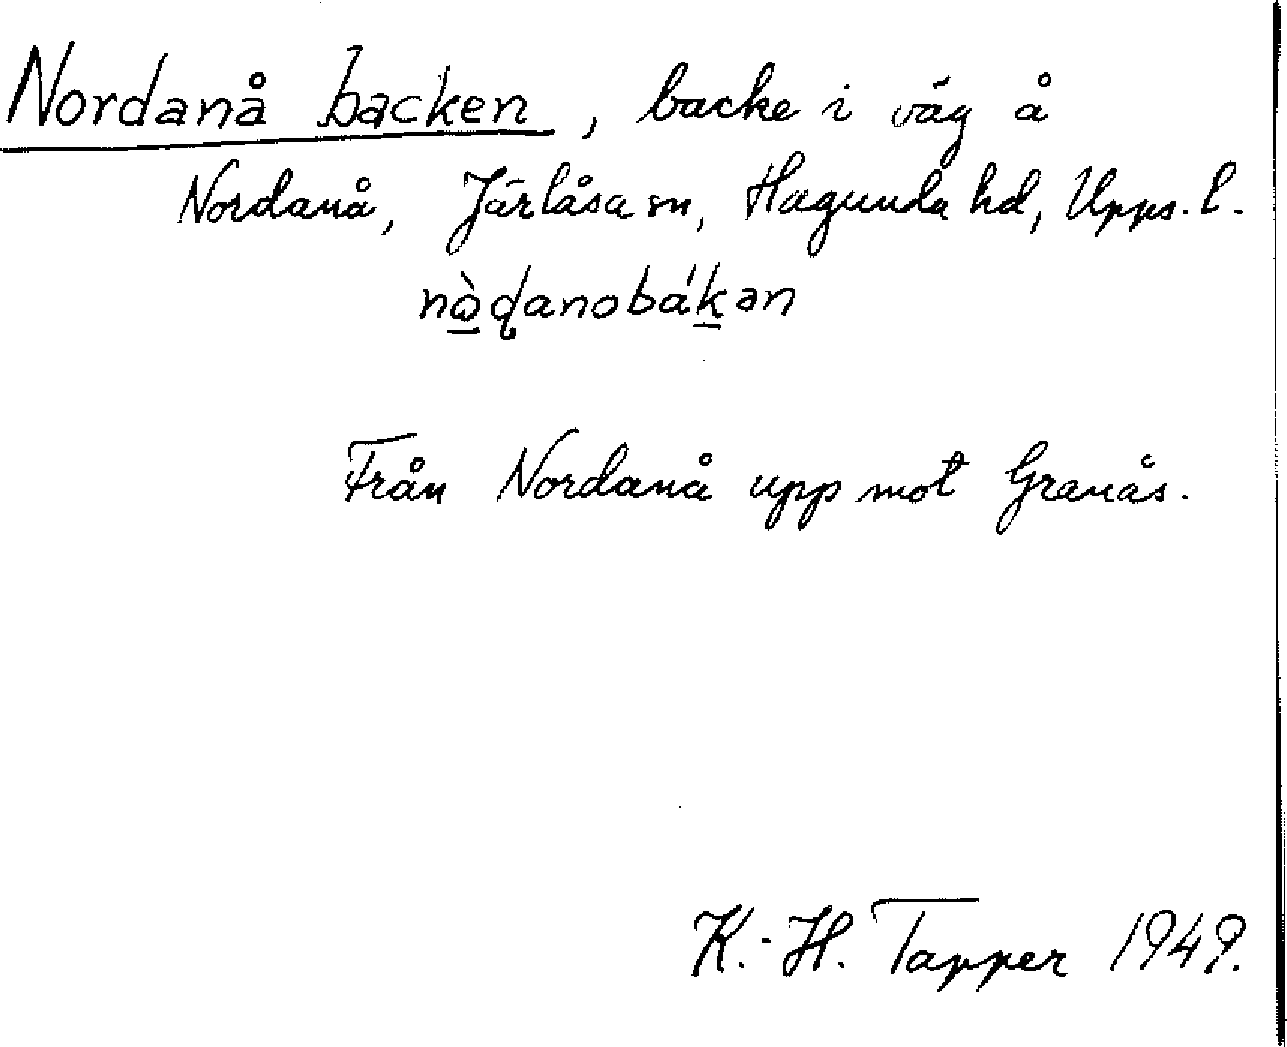 Nordanå backen, backe i väg å
Nordanå, Järlåsa sn, Hagunda hd, Upps. l.
nò̲ɖanobák̲ən
Från Nordanå upp mot Granås.
K.-H. Tapper 1949.